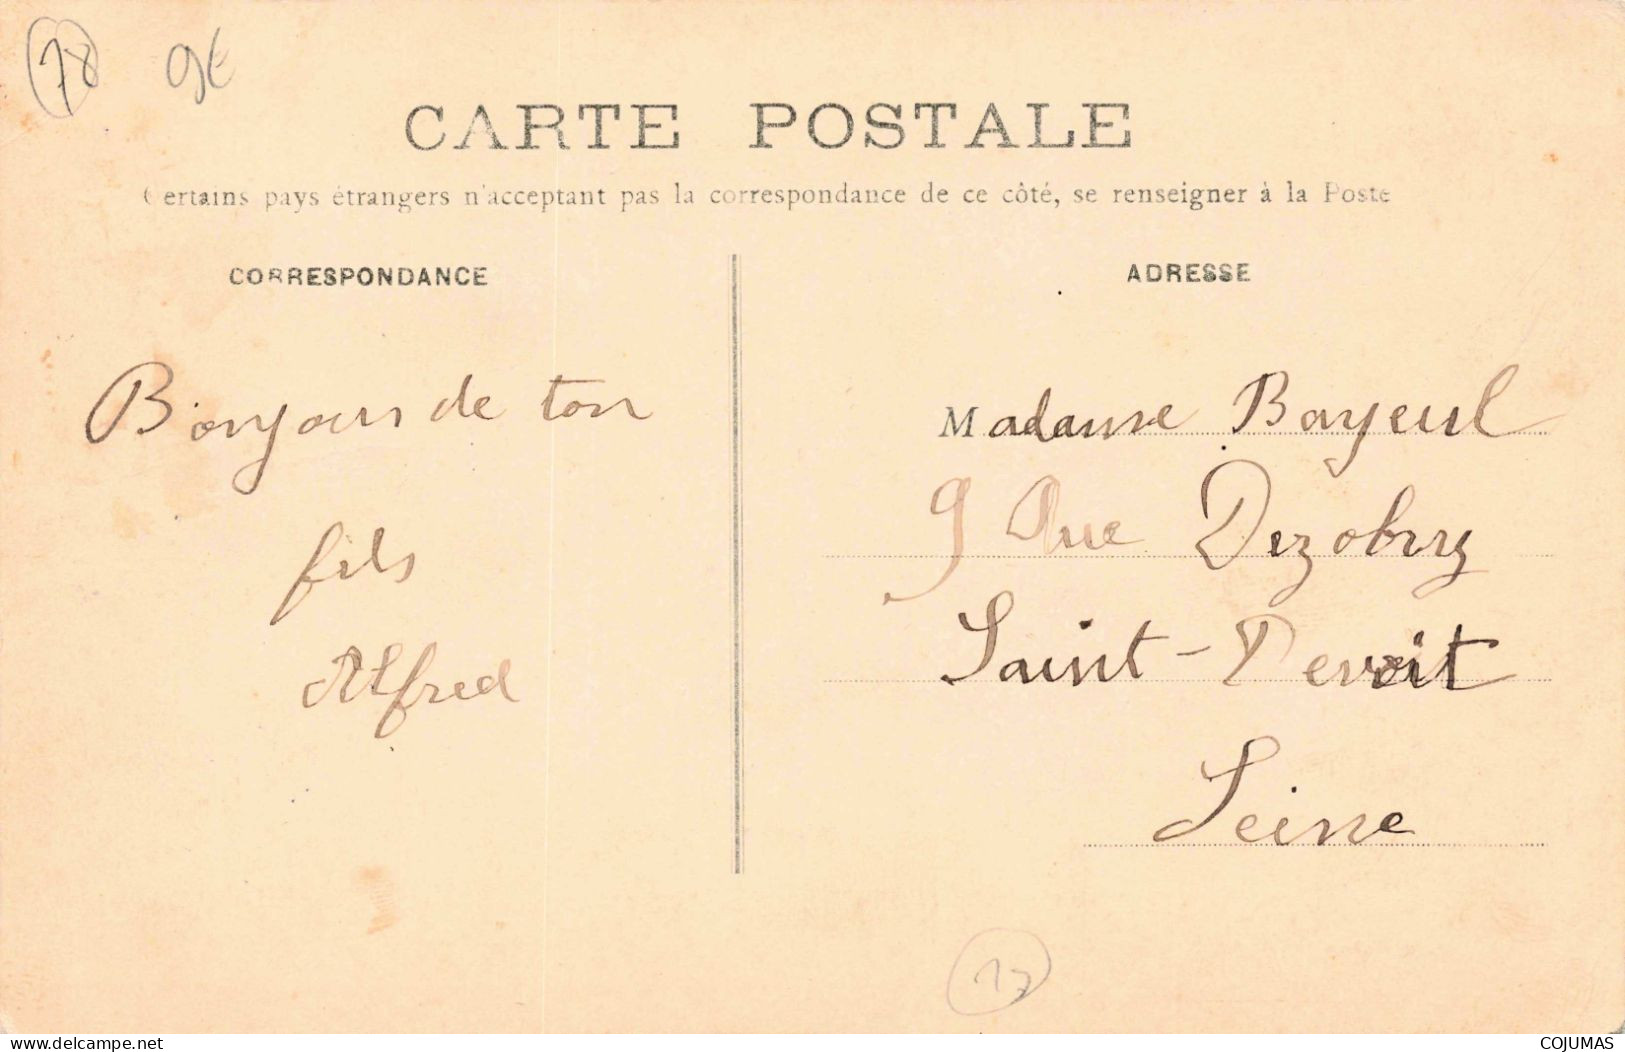 78
9€
CARTE POSTALE
Certains pays étrangers n'acceptant pas la correspondance de ce côté, se renseigner à la Poste
CORRESPONDANCE
Bonjour de ton
fils
Alfred
ADRESSE
Madame Bayeul
9 Rue Dezobry
Saint-Denis
Seine
17
www.delcampe.net
COJUMAS